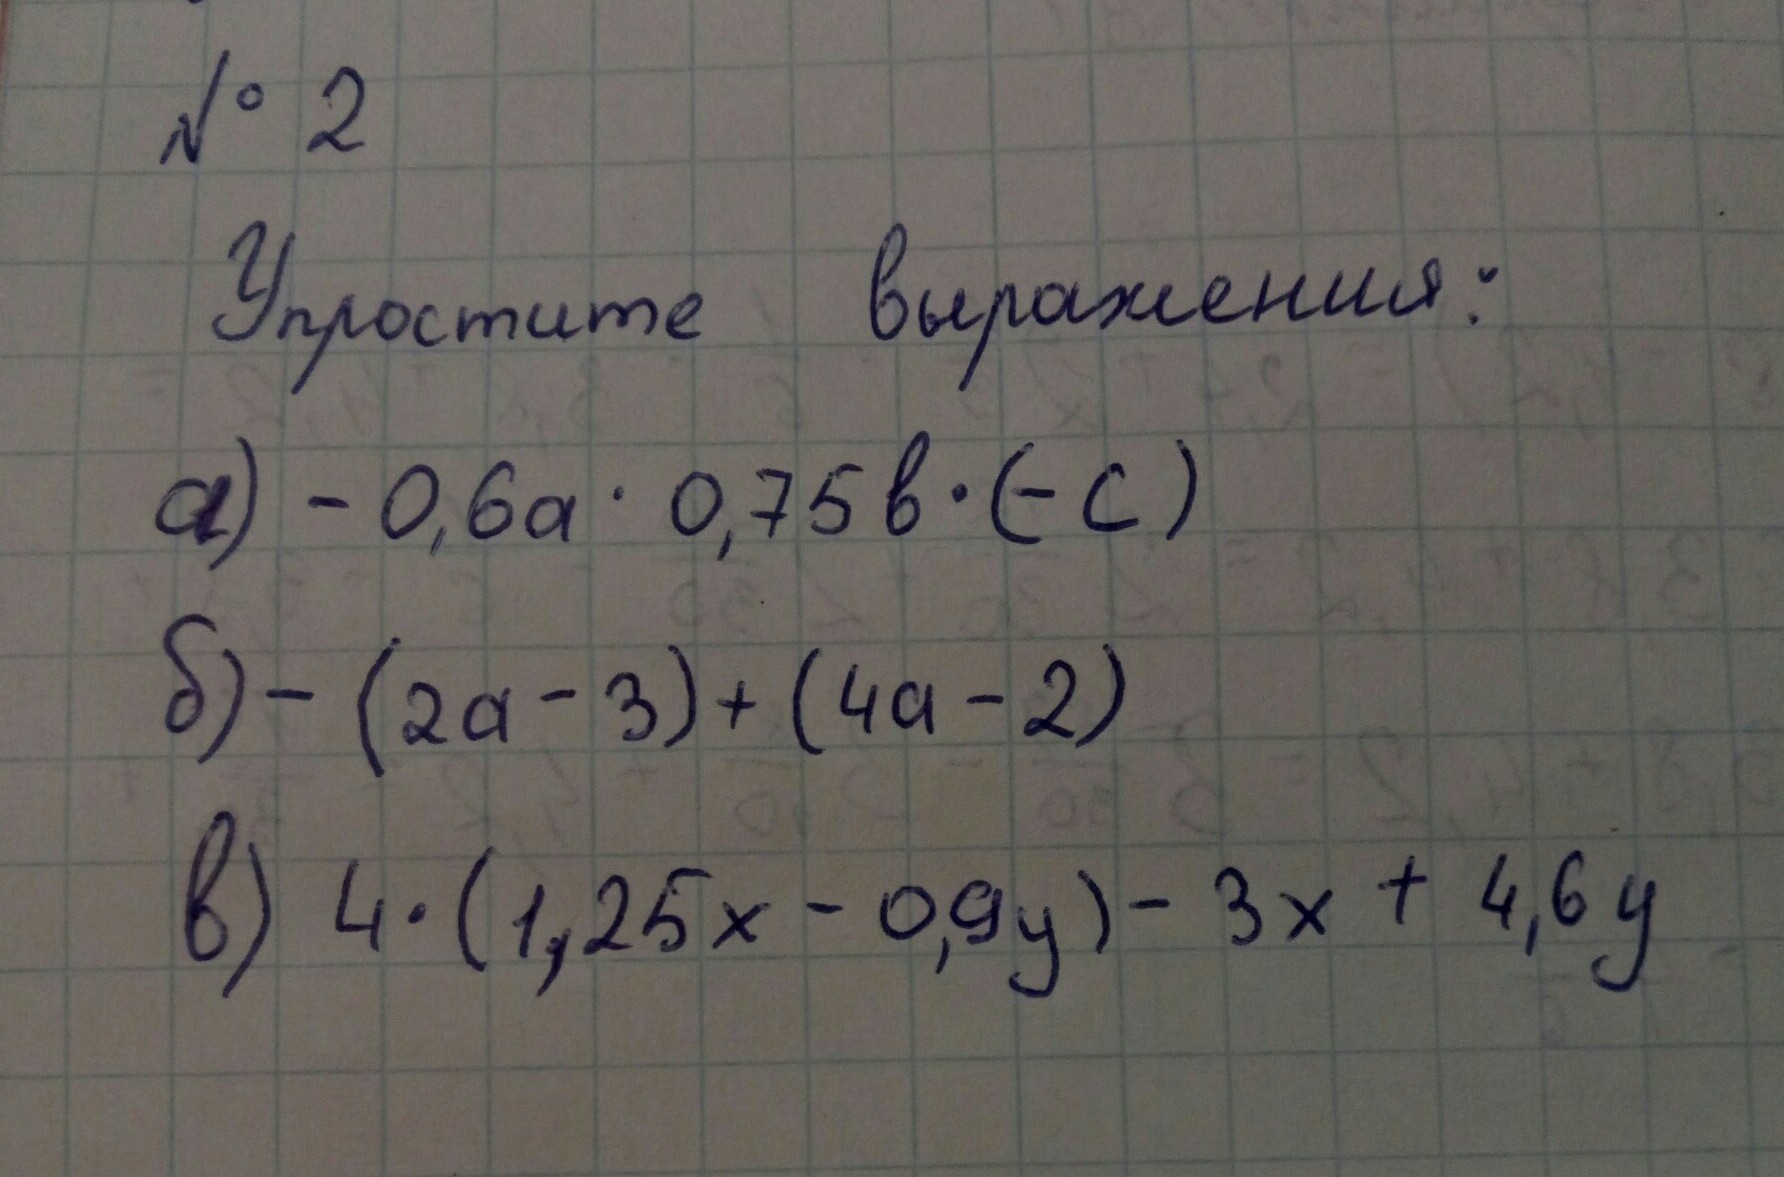 № 2
Упростите выражения:
а) - 0,6а · 0,75в · (- с)
б) - (2а - 3) + (4а - 2)
в) 4 · (1,25х - 0,9у) - 3х + 4,6у